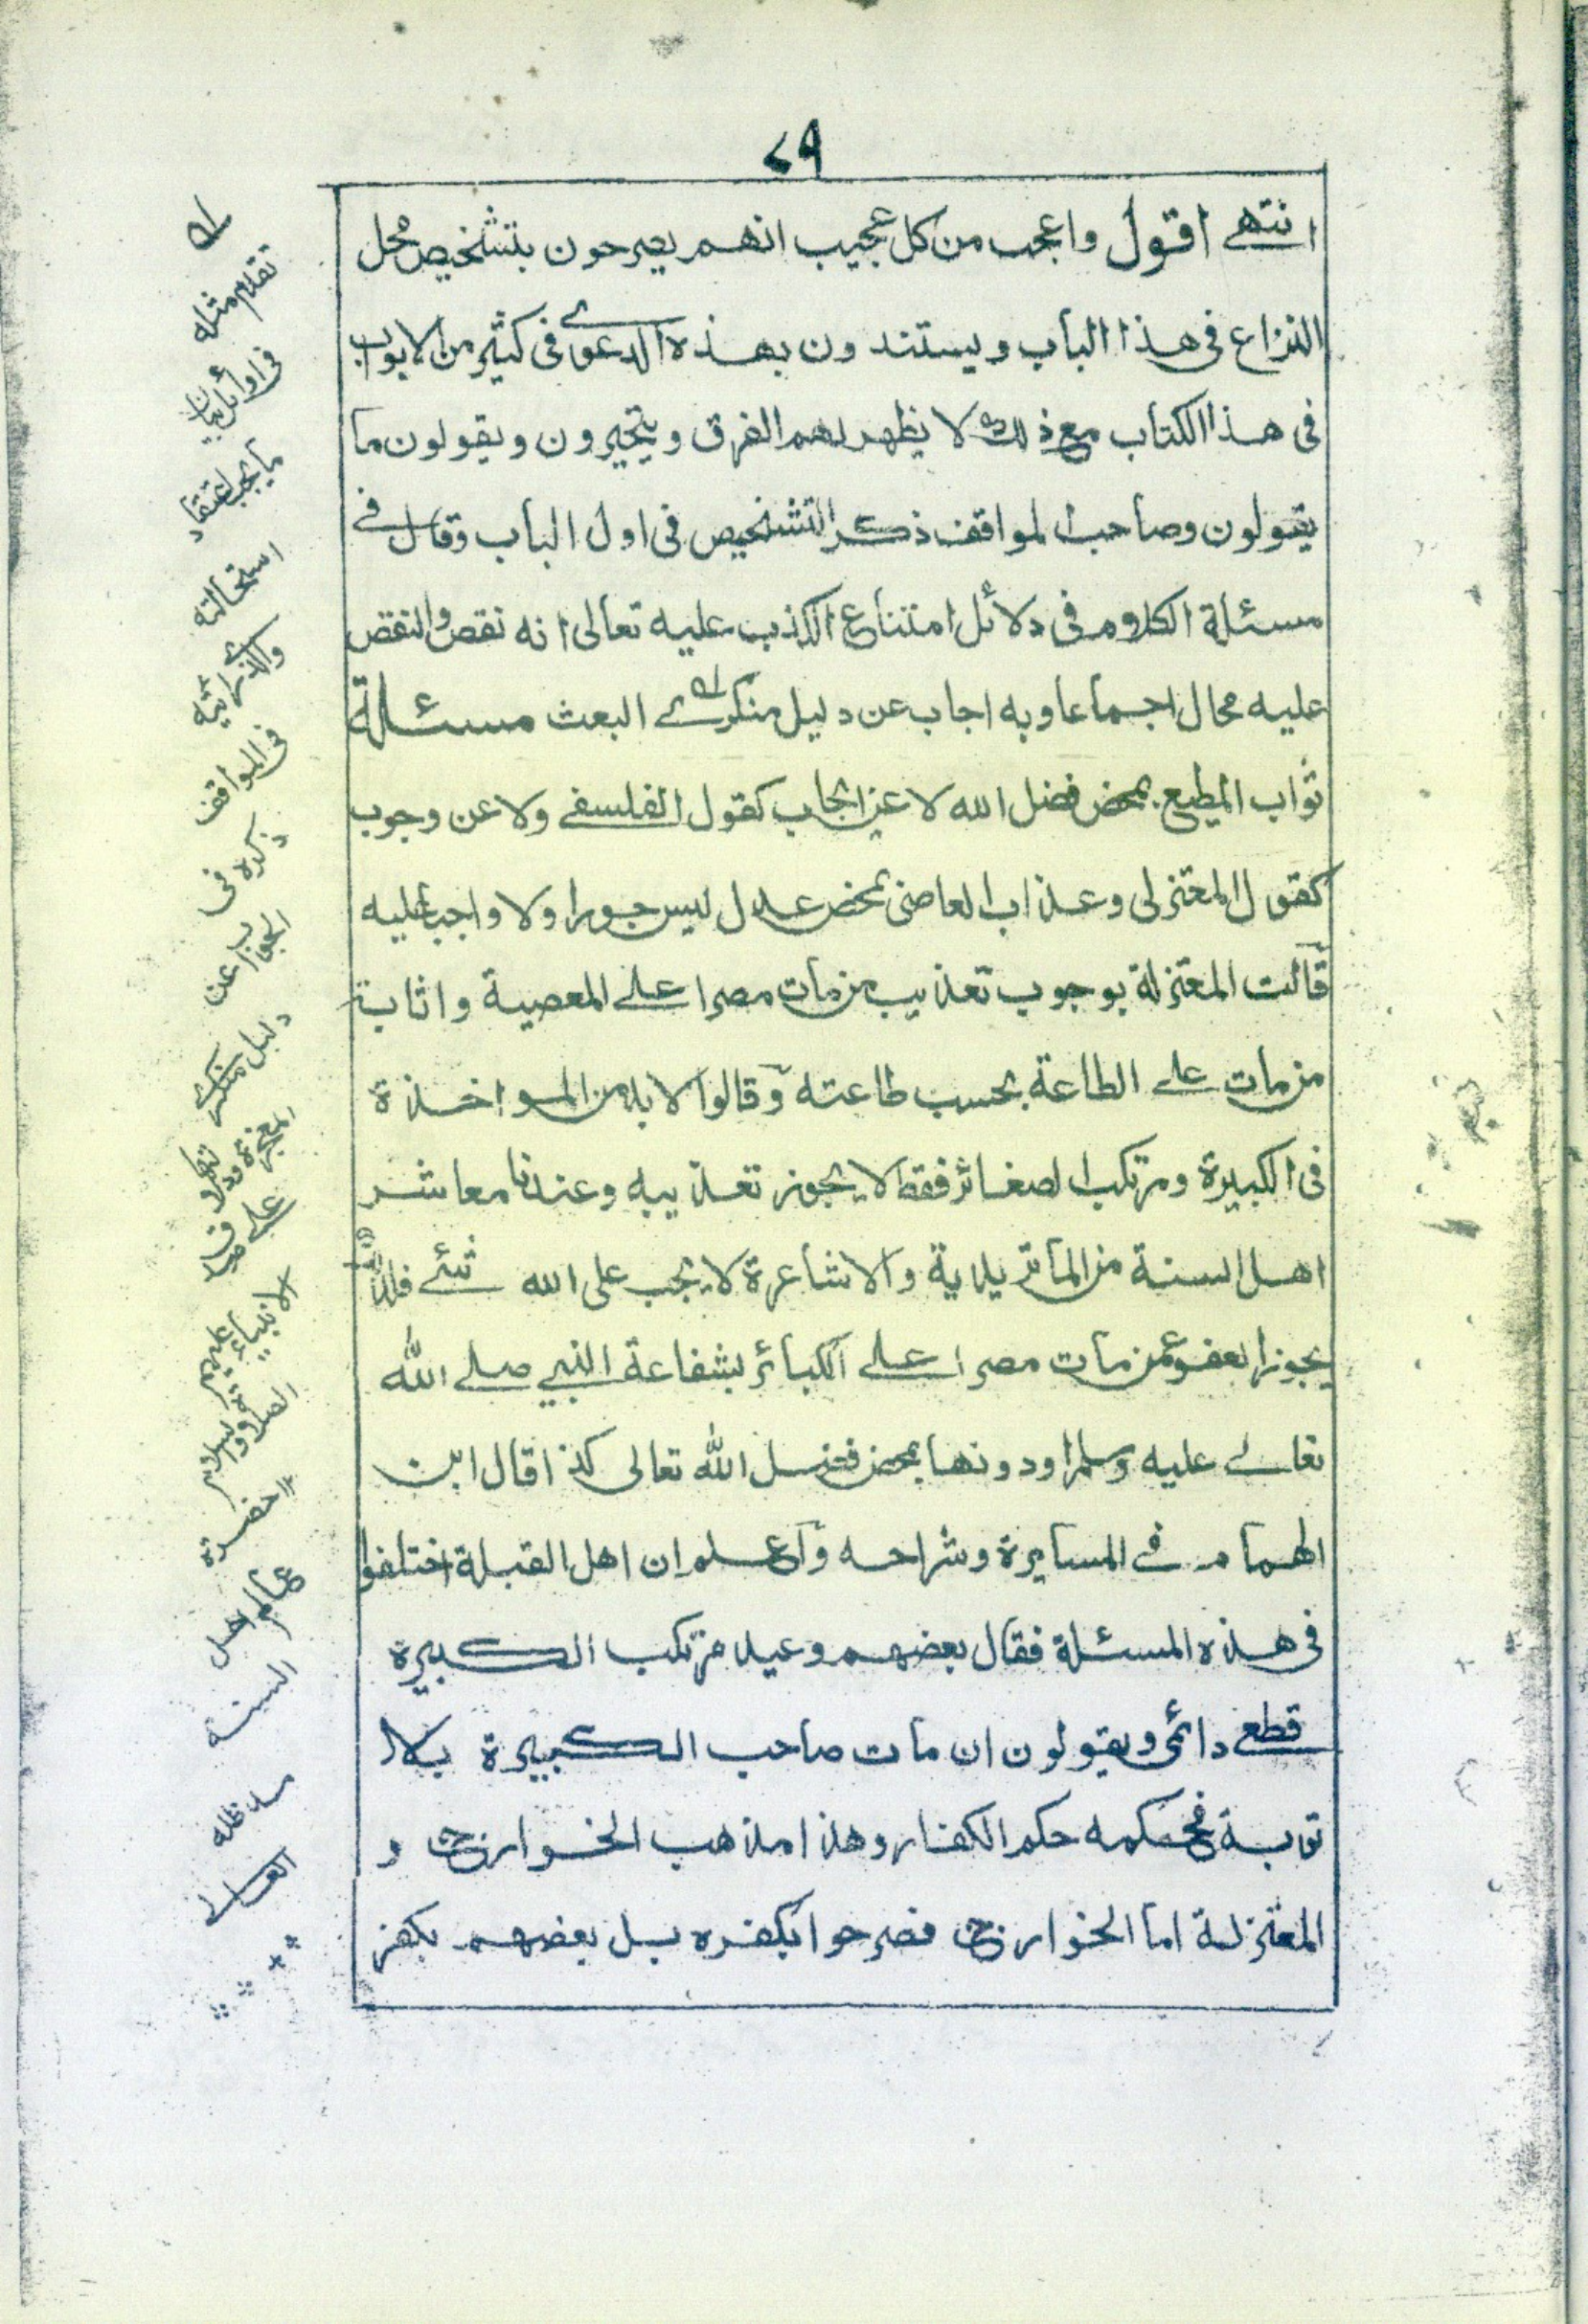 ٤٩
انتهے اقول واعجب من كل عجيب انهم يصرحون بتشخيص محل
النزاع فى هذا الباب ويستندون بهذه الدعوے فى كثير من الابواب
فى هذا الكتاب مع ذلك لا يظهر لهم الفرق ويتحيرون ويقولون ما
يقولون وصاحب المواقف ذكر التشخيص فى اول الباب وقال فے
مسئلة الكلام فى دلائل امتناع الكذب عليه تعالى انه نقص والنقص
عليه محال اجماعا وبه اجاب عن دليل منكرے البعث مسئلة
ثواب المطيع بمحض فضل الله لا عن ايجاب كقول الفلسفے ولا عن وجوب
كقول المعتزلى وعذاب العاصى بمحض عدل ليس جورا ولا واجبا عليه
قالت المعتزلة بوجوب تعذيب من مات مصرا علے المعصية واثابة
من مات علے الطاعة بحسب طاعته وقالوا لا بد من المواخذة
فى الكبيرة ومرتكب الصغائر فقط لا يجوز تعذيبه وعندنا معاشر
اهل السنة من الماتريدية والاشاعرة لا يجب على الله شئے فلذا
يجوز العفو عمن مات مصرا علے الكبائر بشفاعة النبے صلے الله
تعالے عليه وسلم او دونها بمحض فضل الله تعالى كذا قال ابن
الهمام فے المسايرة وشراحه واعلم ان اهل القبلة اختلفوا
فى هذه المسئلة فقال بعضهم وعيد مرتكب الكبيرة
قطعے دائمى ويقولون ان مات صاحب الكبيرة بلا
توبة فحكمه حكم الكفار وهذا مذهب الخوارج و
المعتزلة اما الخوارج فصرحوا بكفره بل بعضهم بكفر
تقدم مثله
فى اوائل بيان
ما يجب اعتقاد
استحالته
والذى اثبته
فى المواقف
ذكره فى
الجواب عن
دليل منكرے
المعجزة
علے
الانبياء عليهم
الصلاة والسلام
حضرة
عالم اهل
السنه
مد ظله
العالے